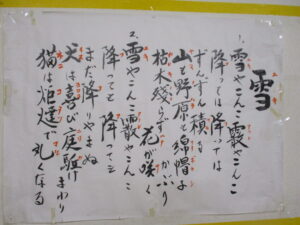 雪
一、雪やこんこ 霰やこんこ
降っては降っては
ずんずん積る
山も野原も綿帽子かぶり
枯木残らず 花が咲く
二、雪やこんこ 霰やこんこ
降っても降っても
まだ降りやまぬ
犬は喜び 庭駈けまわり
猫は炬燵で丸くなる